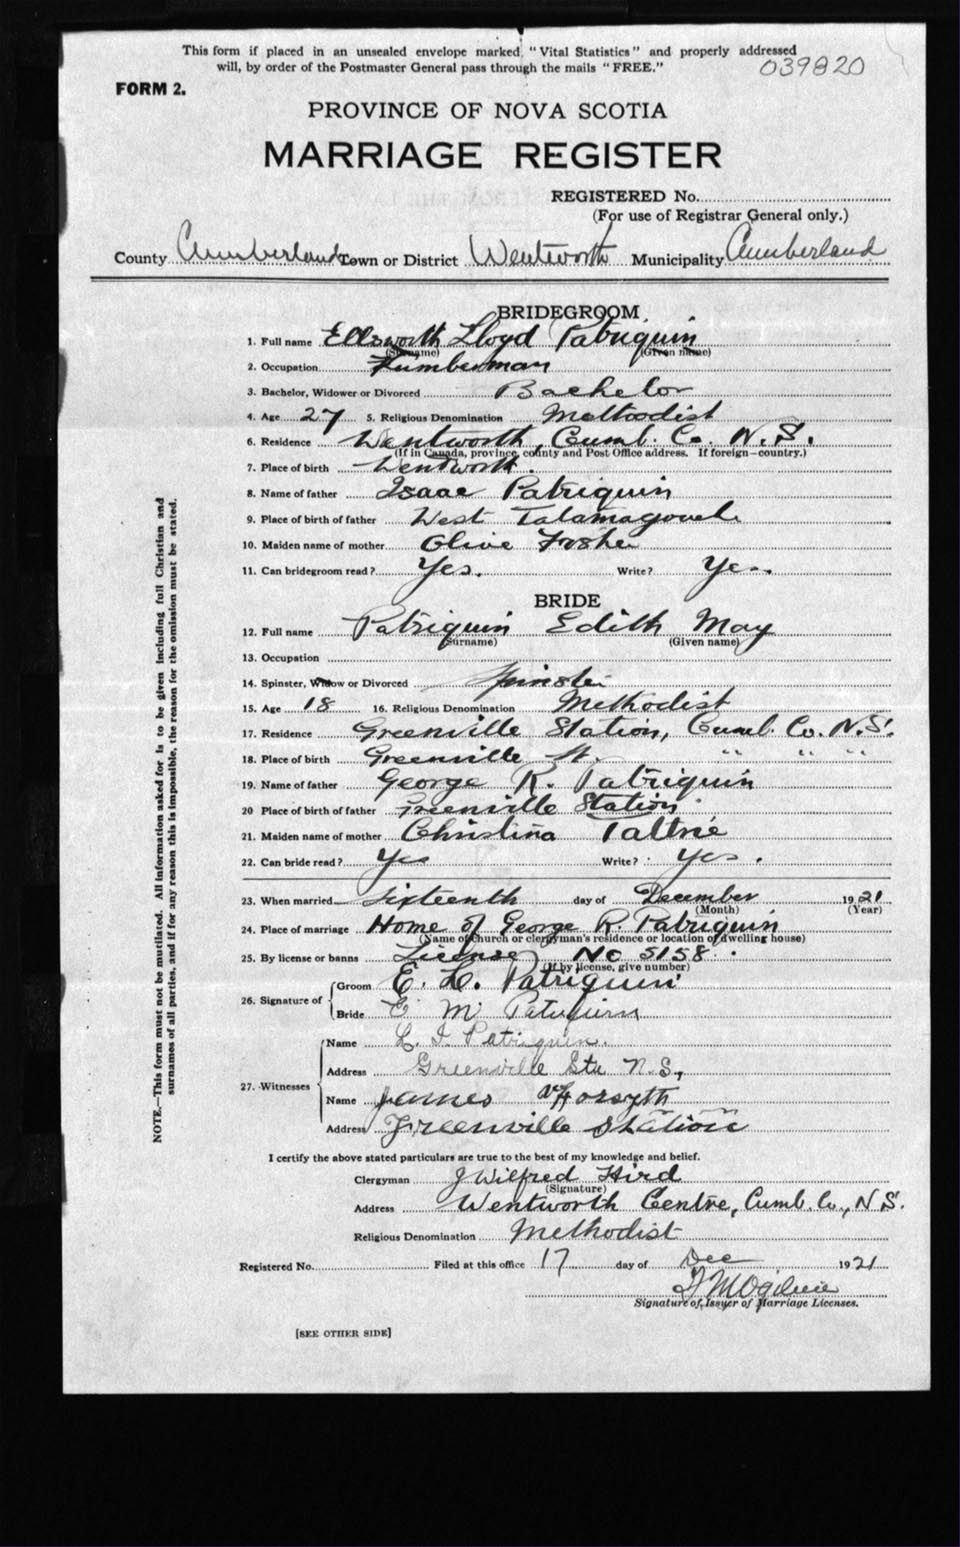 This form if placed in an unsealed envelope marked "Vital Statistics" and properly addressed
will, by order of the Postmaster General pass through the mails "FREE."
039820
FORM 2.
PROVINCE OF NOVA SCOTIA
MARRIAGE REGISTER
REGISTERED No.
(For use of Registrar General only.)
County Cumberland Town or District Wentworth Municipality Cumberland
BRIDEGROOM
1. Full name Ellsworth Lloyd Patriquin
(Surname) (Given name)
2. Occupation Lumberman
3. Bachelor, Widower or Divorced Bachelor
4. Age 27 5. Religious Denomination Methodist
6. Residence Wentworth, Cumb. Co. N.S.
(If in Canada, province, county and Post Office address. If foreign—country.)
7. Place of birth Wentworth.
8. Name of father Isaac Patriquin
9. Place of birth of father West Tatamagouch
10. Maiden name of mother Olive
11. Can bridegroom read? Yes. Write? Yes.
BRIDE
12. Full name Patriquin Edith May
(Surname) (Given name)
13. Occupation
14. Spinster, Widow or Divorced Spinster
15. Age 18 16. Religious Denomination Methodist
17. Residence Greenville Station, Cumb. Co. N.S.
18. Place of birth Greenville St. " " " "
19. Name of father George R. Patriquin
20 Place of birth of father Greenville Station
21. Maiden name of mother Christina Tattrie
22. Can bride read? Yes Write? Yes.
23. When married Sixteenth day of December 1921
(Month) (Year)
24. Place of marriage Home of George R. Patriquin
(Name of church or clergyman's residence or location of dwelling house)
25. By license or banns License No 5158.
(If by license, give number)
26. Signature of Groom E. L. Patriquin
Bride E M Patriquin
27. Witnesses
Name L. I. Patriquin.
Address Greenville Sta N.S.,
Name James Forsyth
Address Greenville Station
I certify the above stated particulars are true to the best of my knowledge and belief.
Clergyman J Wilfred Hird
(Signature)
Address Wentworth Centre, Cumb. Co., N.S.
Religious Denomination Methodist
Registered No. Filed at this office 17 day of Dec 1921
Ogilvie
Signature of Issuer of Marriage Licenses.
[SEE OTHER SIDE]
NOTE.—This form must not be mutilated. All information asked for is to be given including full Christian and
surnames of all parties, and if for any reason this is impossible, the reason for the omission must be stated.